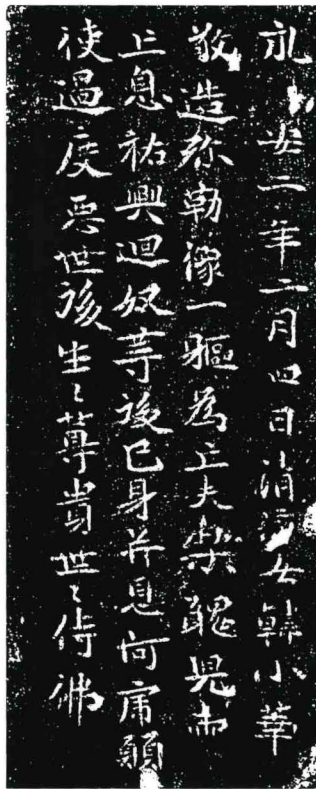 永安二年二月四日清信女韓小華
敬造弥勒像一軀為亡夫樂醜兒与
亡息祐興迴奴等後己身并息阿虎願
使過度恶世後生々尊貴世々侍佛